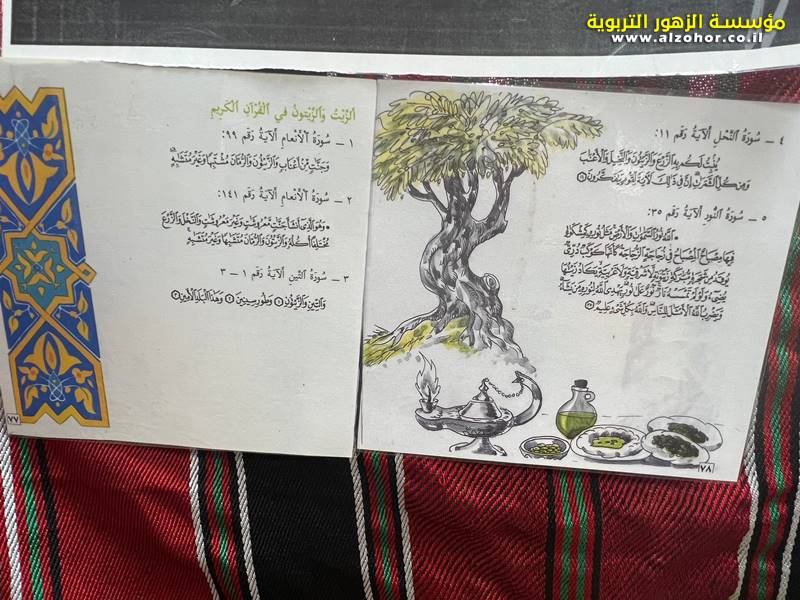 مؤسسة الزهور التربوية
www.alzohor.co.il
اَلزَّيْتُ وَالزَّيْتونُ في القُرْآنِ الكَريمِ
١ – سُورَةُ الأَنْعامِ الآيَةُ رَقم ٩٩:
وَجَنَّٰتٍ مِّنْ أَعْنَابٍ وَالزَّيْتُونَ وَالرُّمَّانَ مُشْتَبِهًا وَغَيْرَ مُتَشَٰبِهٍ
٢ – سُورَةُ الأَنْعامِ الآيَةُ رَقم ١٤١:
وَهُوَ الَّذِي أَنشَأَ جَنَّٰتٍ مَّعْرُوشَٰتٍ وَغَيْرَ مَعْرُوشَٰتٍ وَالنَّخْلَ وَالزَّرْعَ
مُخْتَلِفًا أُكُلُهُ وَالزَّيْتُونَ وَالرُّمَّانَ مُتَشَٰبِهًا وَغَيْرَ مُتَشَٰبِهٍ
٣ – سُورَةُ التّينِ الآيَةُ رَقم ١ – ٣
وَالتِّينِ وَالزَّيْتُونِ ١ وَطُورِ سِينِينَ ٢ وَهَٰذَا الْبَلَدِ الْأَمِينِ ٣
٧٧
٤ – سُورَةُ النَّحْلِ الآيَةُ رَقم ١١:
يُنۢبِتُ لَكُم بِهِ الزَّرْعَ وَالزَّيْتُونَ وَالنَّخِيلَ وَالْأَعْنَٰبَ
وَمِن كُلِّ الثَّمَرَٰتِ إِنَّ فِي ذَٰلِكَ لَآيَةً لِّقَوْمٍ يَتَفَكَّرُونَ ١١
٥ – سُورَةُ النّورِ الآيَةُ رَقم ٣٥:
اللَّهُ نُورُ السَّمَٰوَٰتِ وَالْأَرْضِ مَثَلُ نُورِهِ كَمِشْكَوٰةٍ
فِيهَا مِصْبَاحٌ الْمِصْبَاحُ فِي زُجَاجَةٍ الزُّجَاجَةُ كَأَنَّهَا كَوْكَبٌ دُرِّيٌّ
يُوقَدُ مِن شَجَرَةٍ مُّبَٰرَكَةٍ زَيْتُونَةٍ لَّا شَرْقِيَّةٍ وَلَا غَرْبِيَّةٍ يَكَادُ زَيْتُهَا
يُضِيءُ وَلَوْ لَمْ تَمْسَسْهُ نَارٌ نُّورٌ عَلَىٰ نُورٍ يَهْدِي اللَّهُ لِنُورِهِ مَن يَشَاءُ
وَيَضْرِبُ اللَّهُ الْأَمْثَٰلَ لِلنَّاسِ وَاللَّهُ بِكُلِّ شَيْءٍ عَلِيمٌ ٣٥
٧٨